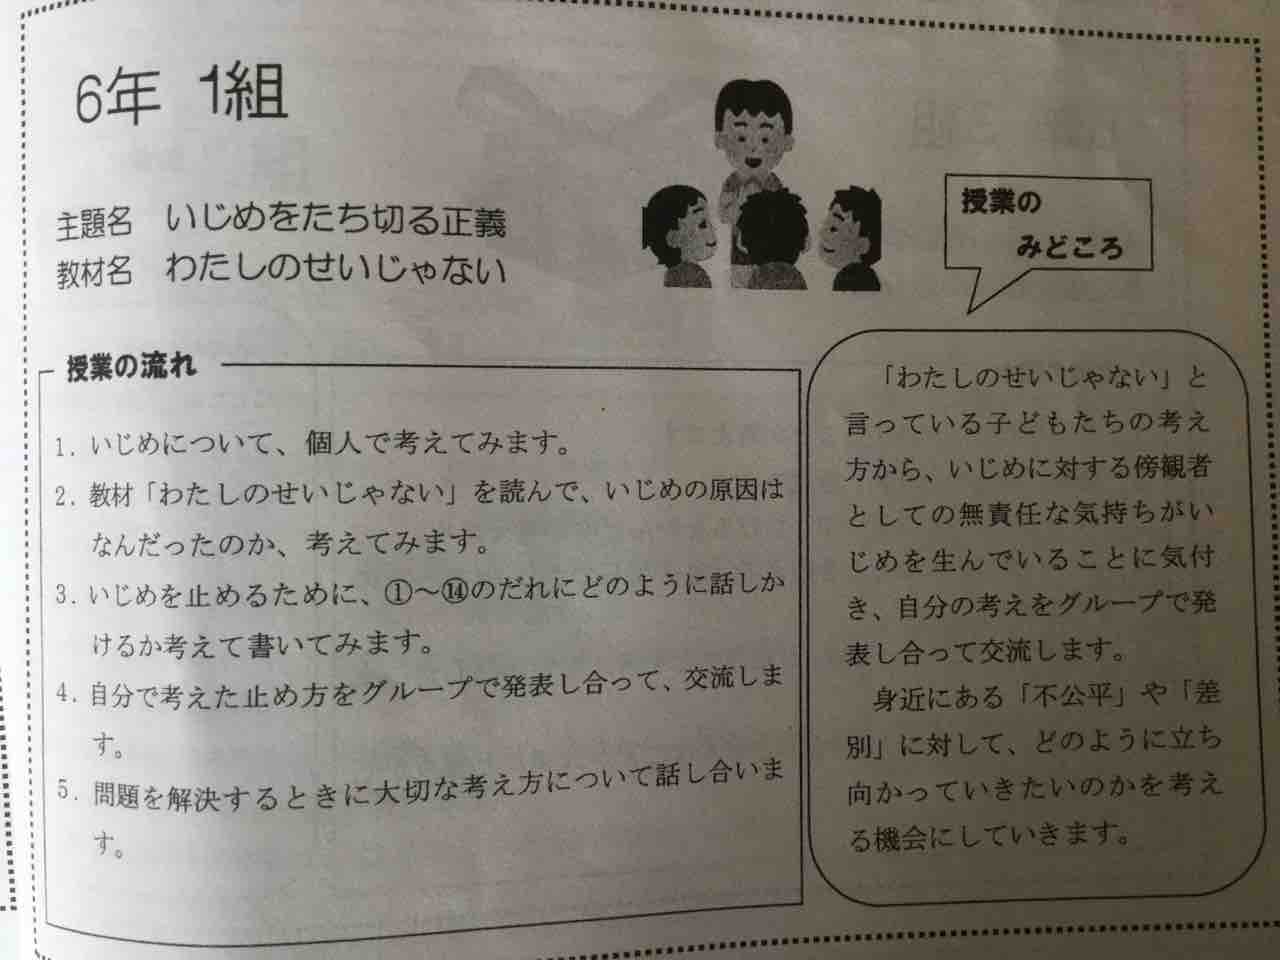 6年 1組
主題名 いじめをたち切る正義
教材名 わたしのせいじゃない
授業の
みどころ
授業の流れ
1. いじめについて、個人で考えてみます。
2. 教材「わたしのせいじゃない」を読んで、いじめの原因は
なんだったのか、考えてみます。
3. いじめを止めるために、①～⑭のだれにどのように話しか
けるか考えて書いてみます。
4. 自分で考えた止め方をグループで発表し合って、交流しま
す。
5. 問題を解決するときに大切な考え方について話し合いま
す。
「わたしのせいじゃない」と
言っている子どもたちの考え
方から、いじめに対する傍観者
としての無責任な気持ちがい
じめを生んでいることに気付
き、自分の考えをグループで発
表し合って交流します。
身近にある「不公平」や「差
別」に対して、どのように立ち
向かっていきたいのかを考え
る機会にしていきます。